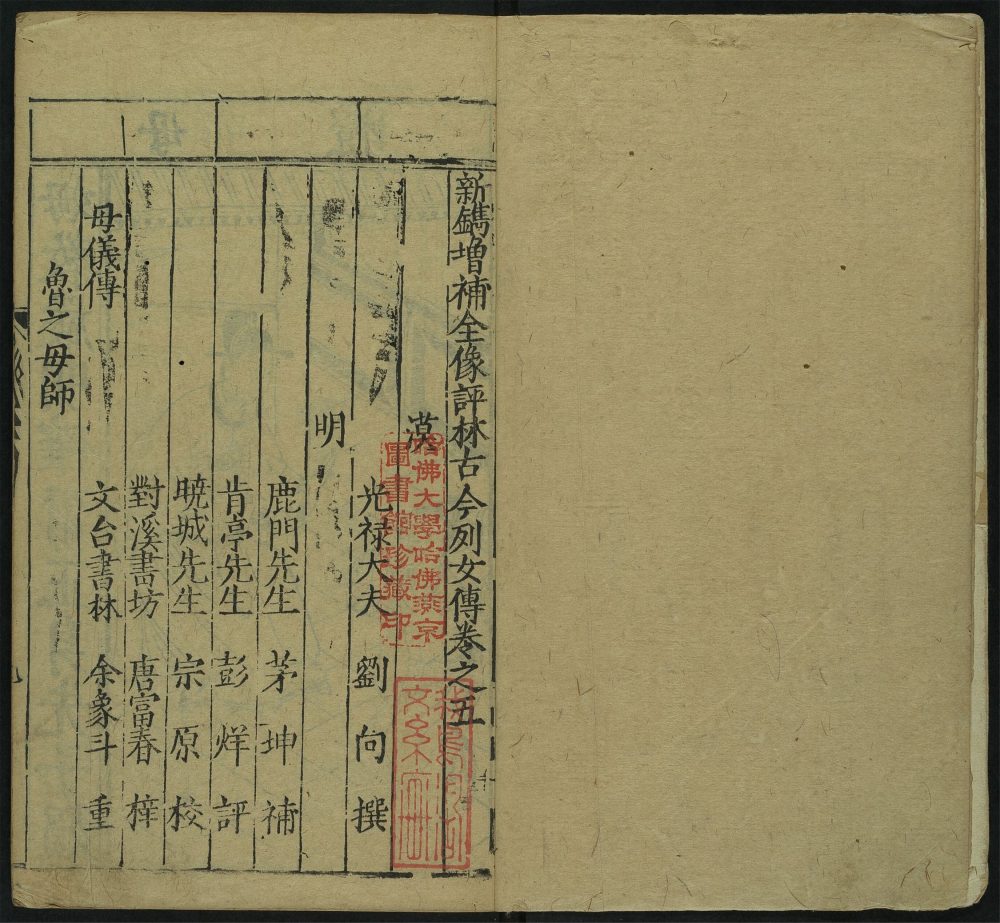 新鐫增補全像評林古今列女傳卷之五
漢
光祿大夫 劉向撰
明
鹿門先生 茅坤補
肯亭先生 彭烊評
曉城先生 宗原校
對溪書坊 唐富春梓
文台書林 余象斗重
母儀傳
魯之母師
哈佛大學哈佛燕京
圖書館珍藏印